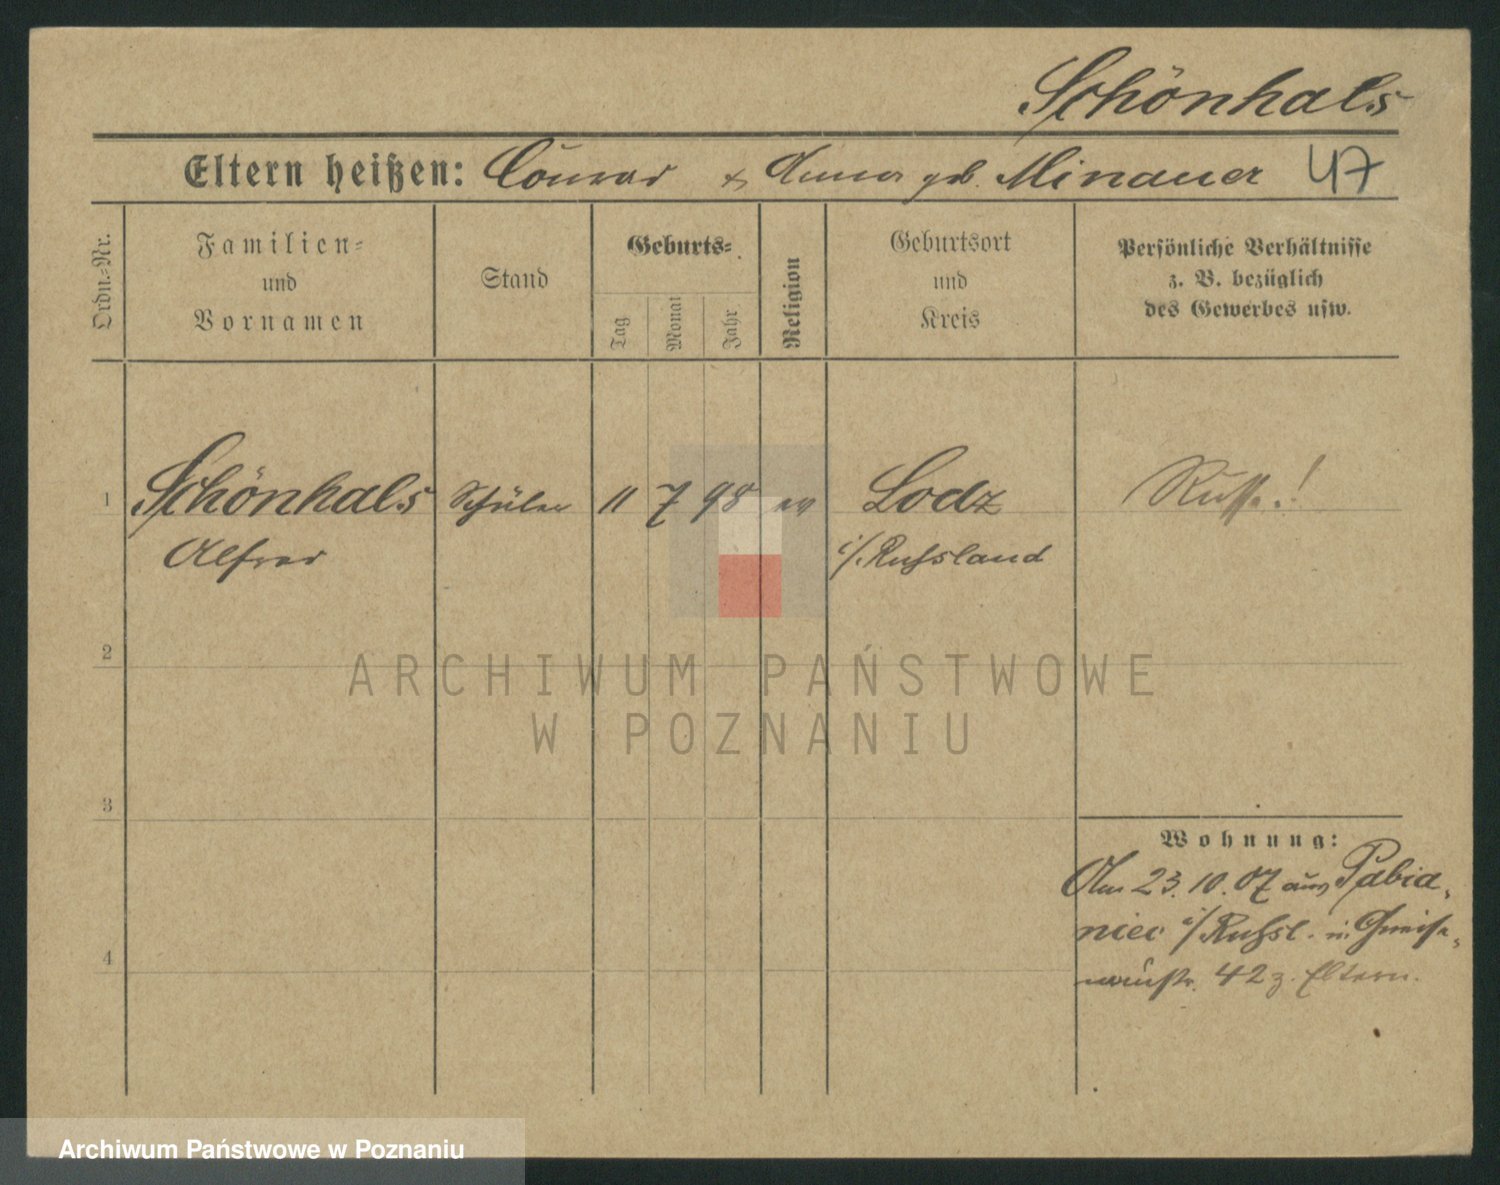 Schönhals
Eltern heißen: Conrad & Anna geb. Minauer 47
Ordn.-Nr.
Familien-
und
Vornamen
Stand
Geburts-
Tag
Monat
Jahr
Religion
Geburtsort
und
Kreis
Persönliche Verhältnisse
z. B. bezüglich
des Gewerbes usw.
1 Schönhals Schüler 11 7 98 ev Lodz Russe!
Alfred i/. Russland
2
ARCHIWUM PAŃSTWOWE
W POZNANIU
3
Wohnung:
Am 23.10.07 aus Pabia-
nice i/Russl. in Gneise-
naustr. 42 z. Eltern.
4
Archiwum Państwowe w Poznaniu